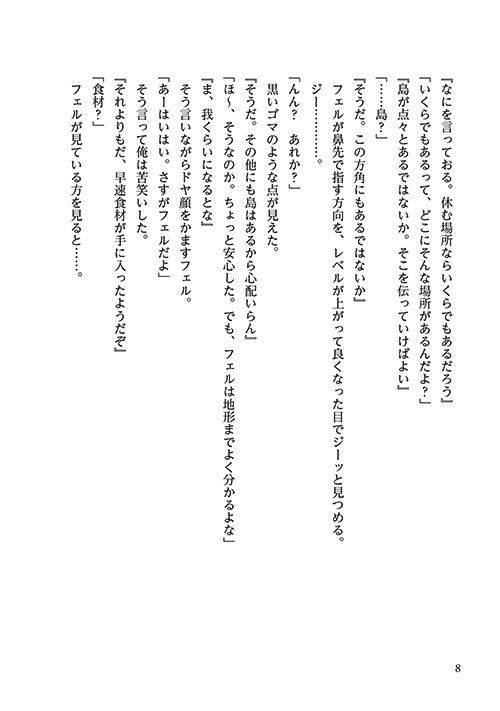 『なにを言っておる。休む場所ならいくらでもあるだろう』
「いくらでもあるって、どこにそんな場所があるんだよ？」
『島が点々とあるではないか。そこを伝っていけばよい』
「……島？」
『そうだ。この方角にもあるではないか』
フェルが鼻先で指す方向を、レベルが上がって良くなった目でジーッと見つめる。
ジー…………。
「んん？　あれか？」
黒いゴマのような点が見えた。
『そうだ。その他にも島はあるから心配いらん』
「ほ〜、そうなのか。ちょっと安心した。でも、フェルは地形までよく分かるよな」
『ま、我くらいになるとな』
そう言いながらドヤ顔をかますフェル。
「あーはいはい。さすがフェルだよ」
そう言って俺は苦笑いした。
『それよりもだ、早速食材が手に入ったようだぞ』
「食材？」
フェルが見ている方を見ると……。
8